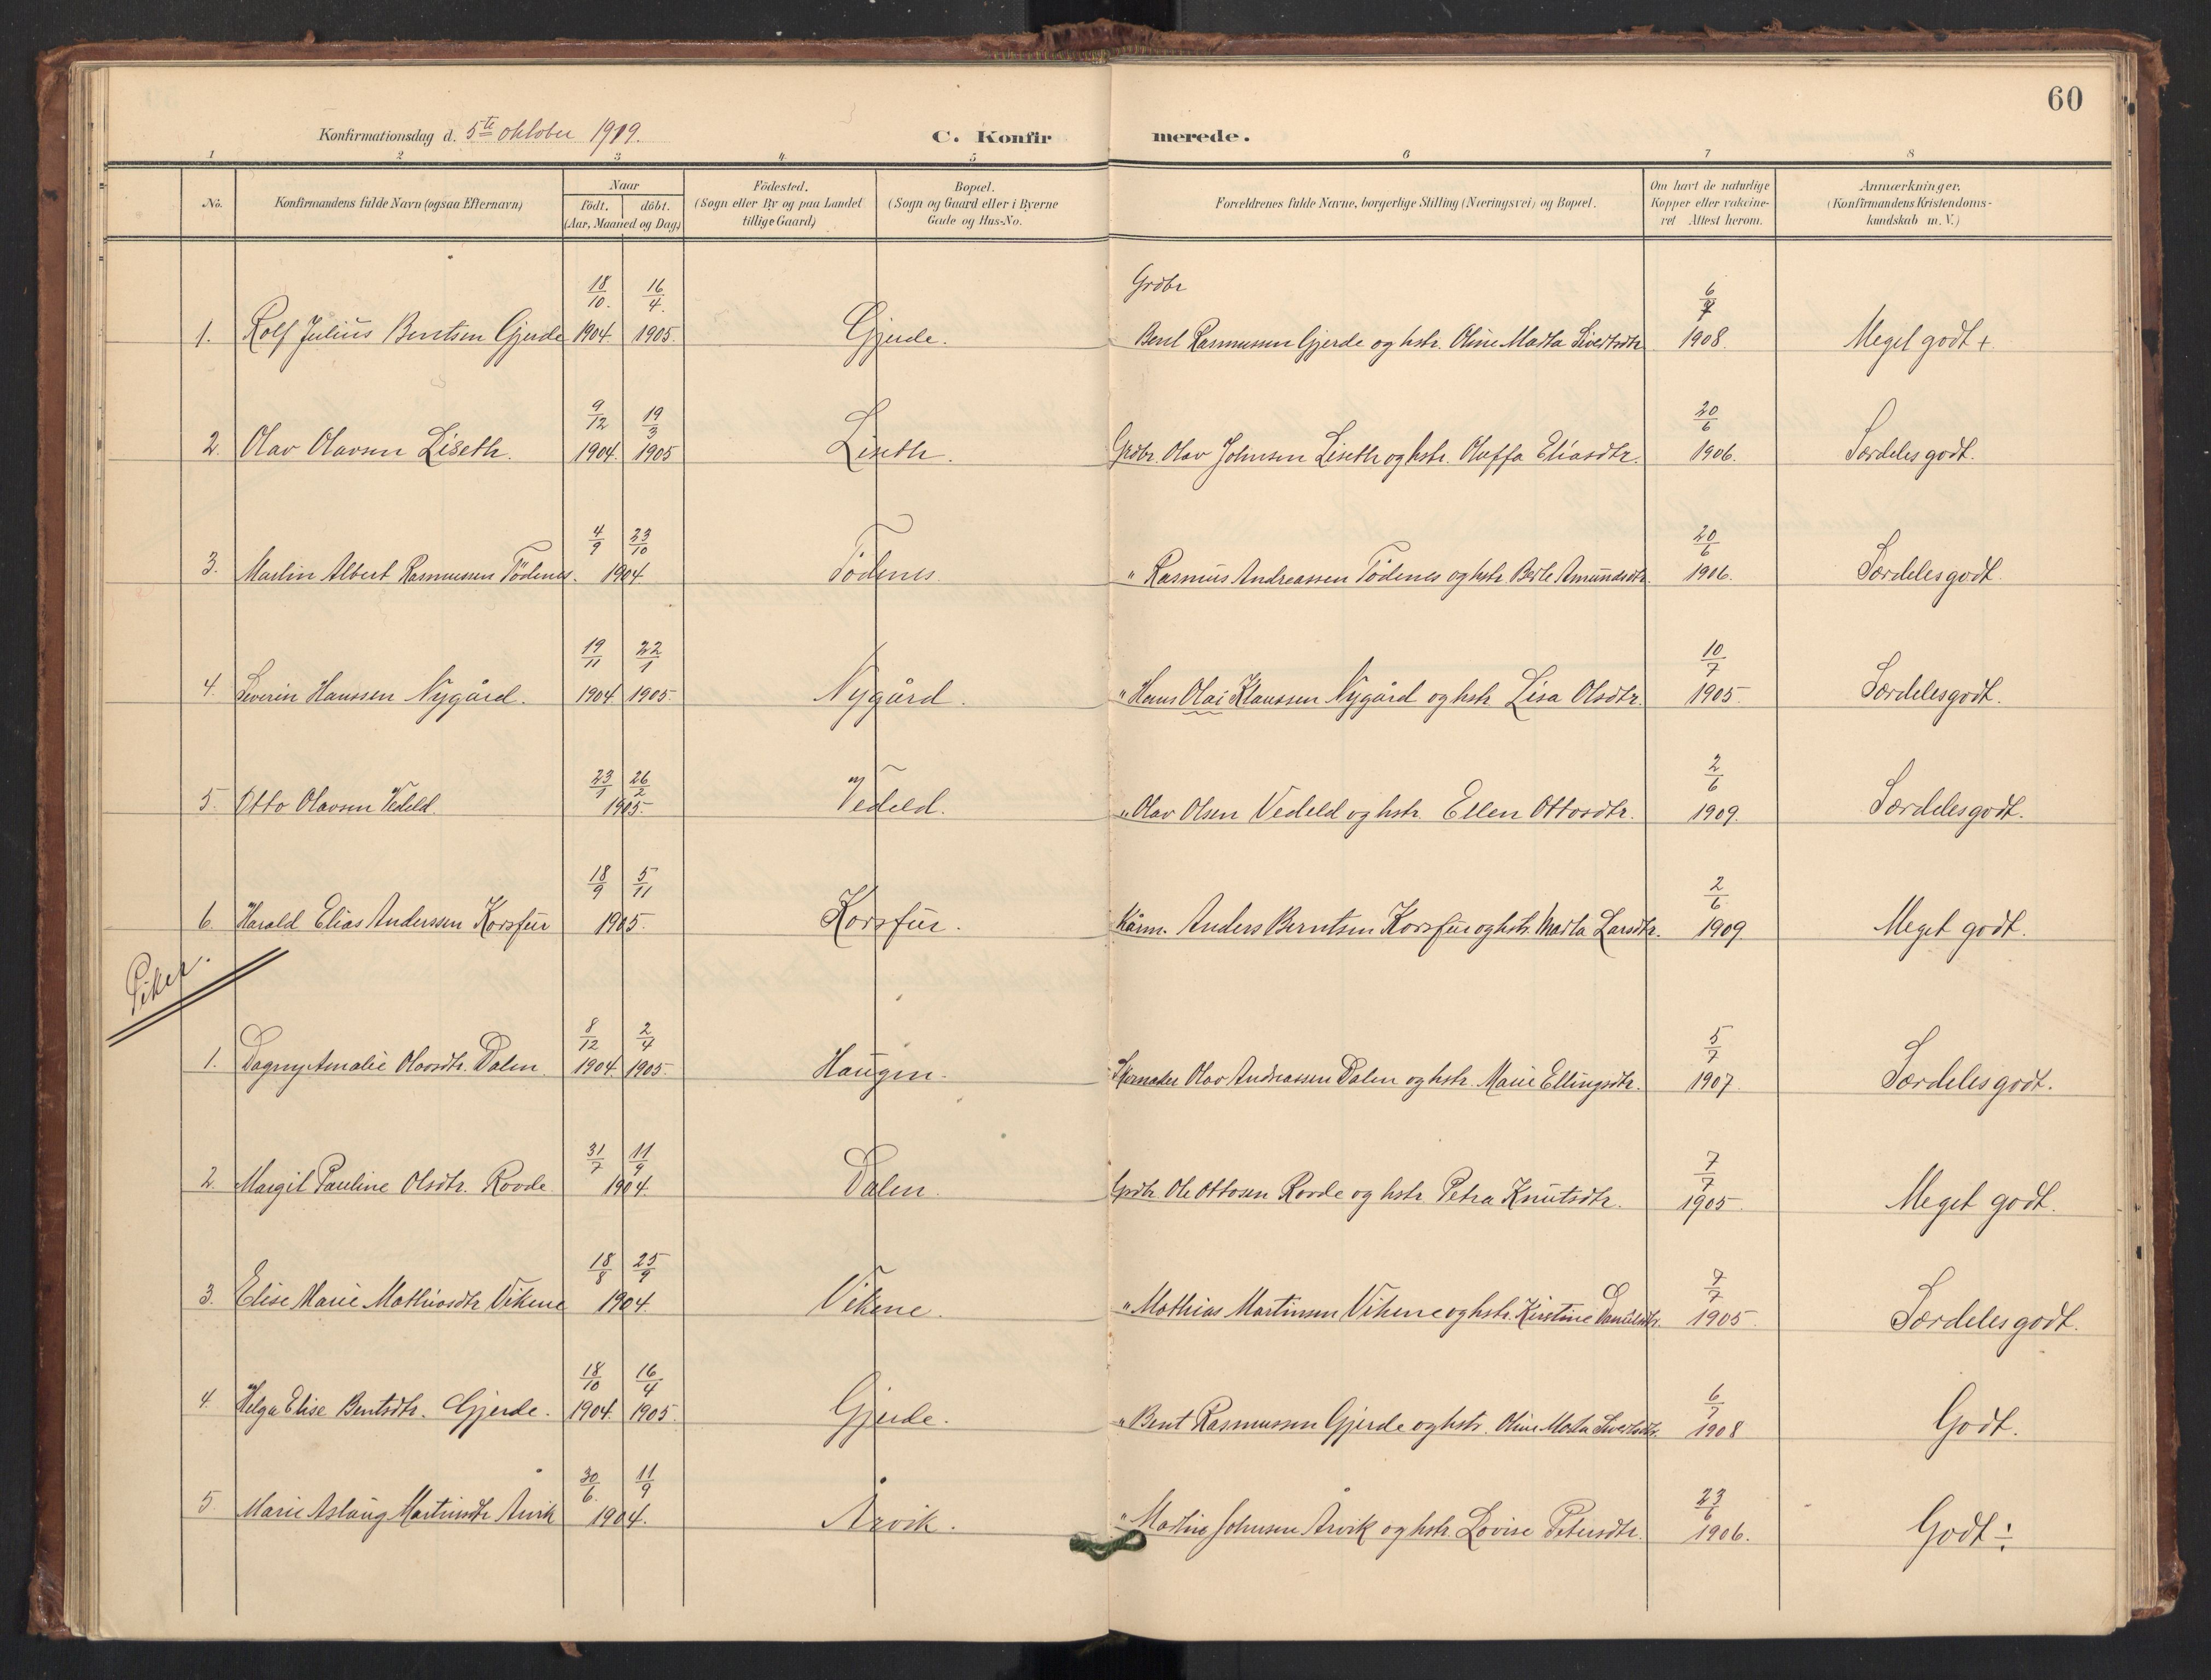 60
Konfirmationsdag d. 5te oktober 1919. C. Konfirmerede.
1 2 3 4 5 6 7 8
No. Konfirmandens fulde Navn (ogsaa Efternavn) Naar Födt. döbt. (Aar, Maaned og Dag) Födested. (Sogn eller By og paa Landet tillige Gaard) Bopæl. (Sogn og Gaard eller i Byerne Gade og Hus-No. Forældrenes fulde Navne, borgerlige Stilling (Næringsvei) og Bopæl. Om havt de naturlige Kopper eller vakcineret Attest herom. Anmærkninger. (Konfirmandens Kristendomskundskab m. V.)
Grdbr
1. Rolf Julius Bentsen Gjerde 18/10. 1904. 16/4. 1905. Gjerde. Bent Rasmussen Gjerde og hstr. Oline Marta Sivertsdtr 6/7 1908. Meget godt +
2. Olav Olavsen Liseth. 9/12 1904. 19/3 1905 Liseth. Grdbr. Olav Johnsen Liseth og hstr. Oluffa Eliasdtr. 20/6 1906. Særdeles godt.
3. Martin Albert Rasmussen Tödenes. 4/9 23/10 1904 Tödenes. " Rasmus Andreassen Tödenes og hstr. Berte Amundsdtr. 20/6 1906. Særdeles godt.
4. Severin Hanssen Nygård. 19/11 1904 22/1 1905. Nygård. " Hans Olai Klaussen Nygård og hstr Lisa Olsdtr. 10/7 1905. Særdeles godt.
5. Otto Olavsen Vedeld. 23/1 26/2 1905. Vedeld. " Olav Olsen Vedeld og hstr. Ellen Ottosdtr. 2/6 1909. Særdeles godt.
6. Harald Elias Anderssen Korsfur 18/9 5/11 1905. Korsfur. Kårm. Anders Berntsen Korsfur og hstr. Marta Larsdtr. 2/6 1909. Meget godt.
Piker.
1. Dagny Amalie Olavsdtr. Dalen. 8/12 1904. 2/4 1905. Haugen. Skomaker Olav Andreassen Dalen og hstr. Marie Ellingsdtr. 5/7 1907. Særdeles godt.
2. Margit Pauline Olsdtr. Rovde 31/7 11/9 1904. Dalen. Grdbr Ole Ottosen Rovde og hstr. Petra Knutsdtr. 7/7 1905. Meget godt.
3. Elise Marie Mathiasdtr Vikene 18/8 25/9 1904. Vikene. " Mathias Martinsen Vikene og hstr. Kirstine Danielsdtr. 7/7 1905. Særdeles godt.
4. Helga Elise Bentsdtr. Gjerde. 18/10 1904. 16/4 1905. Gjerde. " Bent Rasmussen Gjerde og hstr. Oline Marta Sivertsdtr. 6/7 1908 Godt.
5. Marie Aslaug Martinsdtr Årvik 30/6. 11/9 1904. Årvik. " Martin Johnsen Årvik og hstr. Lovise Petersdtr. 23/6 1906. Godt ÷